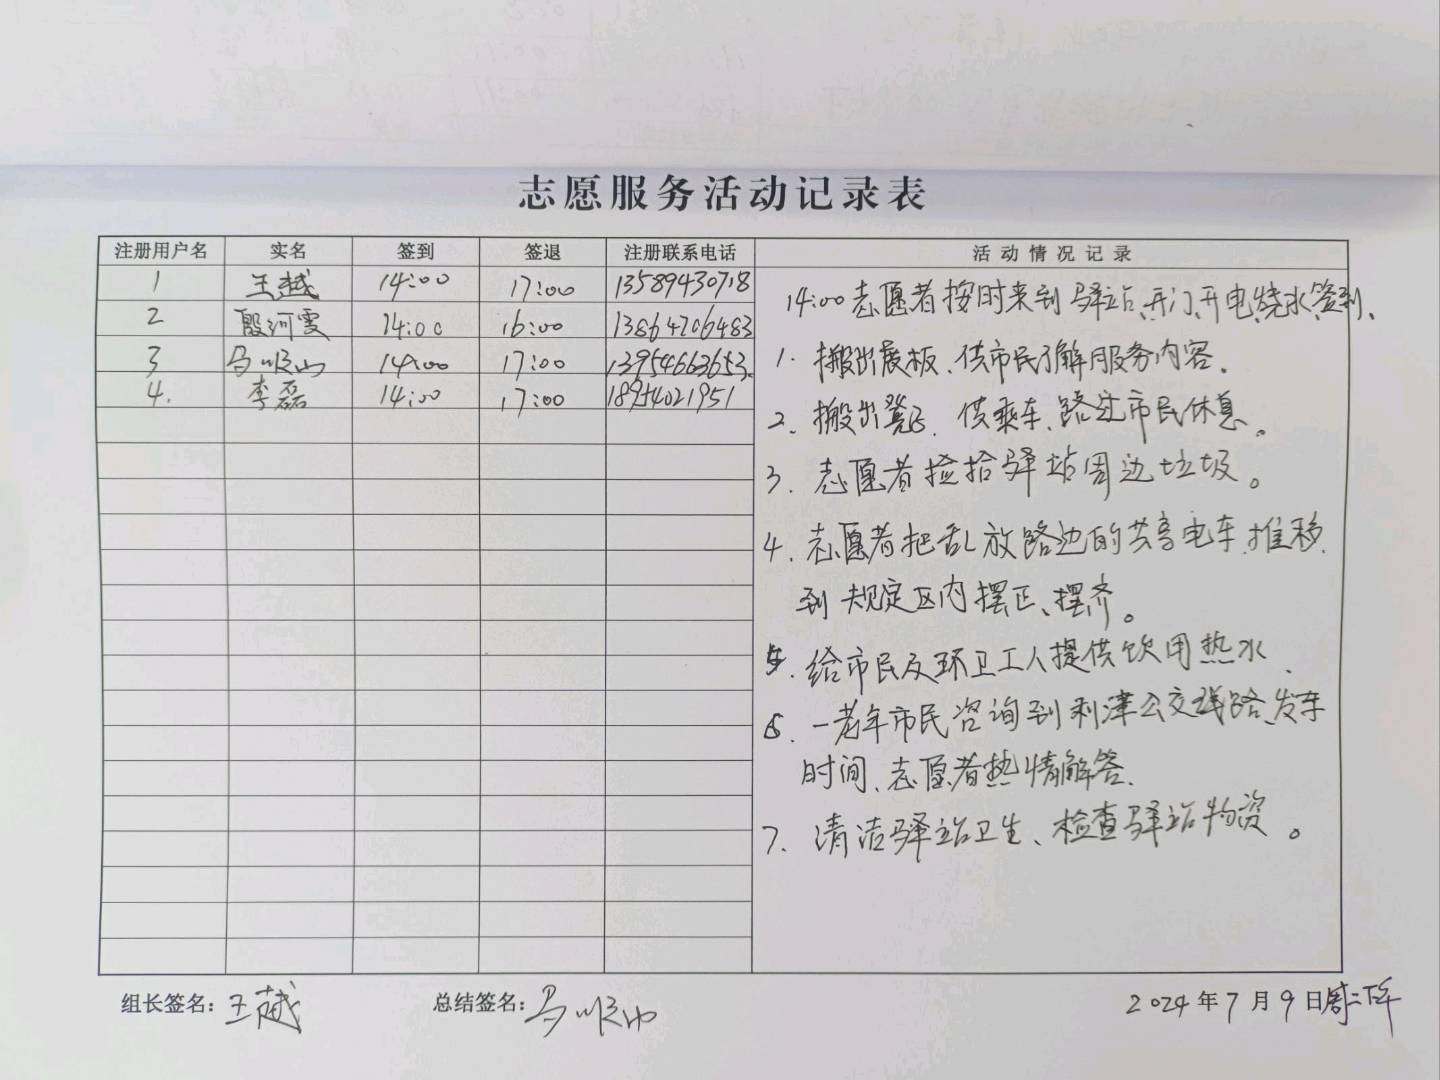 志愿服务活动记录表
注册用户名 实名 签到 签退 注册联系电话 活动情况记录
1 王越 14:00 17:00 13589430718
2 殷河雯 14:00 16:00 13864706483
3 马顺山 14:00 17:00 13954663653
4. 李磊 14:00 17:00 18954021951
14:00志愿者按时来到驿站、开门、开电、烧水、签到、
1. 搬出展板、供市民了解服务内容。
2、搬出凳子、供乘车、路过市民休息。
3. 志愿者捡拾驿站周边垃圾。
4. 志愿者把乱放路边的共享电车、推移
到规定区内摆正、摆齐。
5. 给市民及环卫工人提供饮用热水、
6. 一老年市民咨询到利津公交线路、发车
时间、志愿者热情解答、
7. 清洁驿站卫生、检查驿站物资。
组长签名：王越 总结签名：马顺山 2024年7月9日周二下午